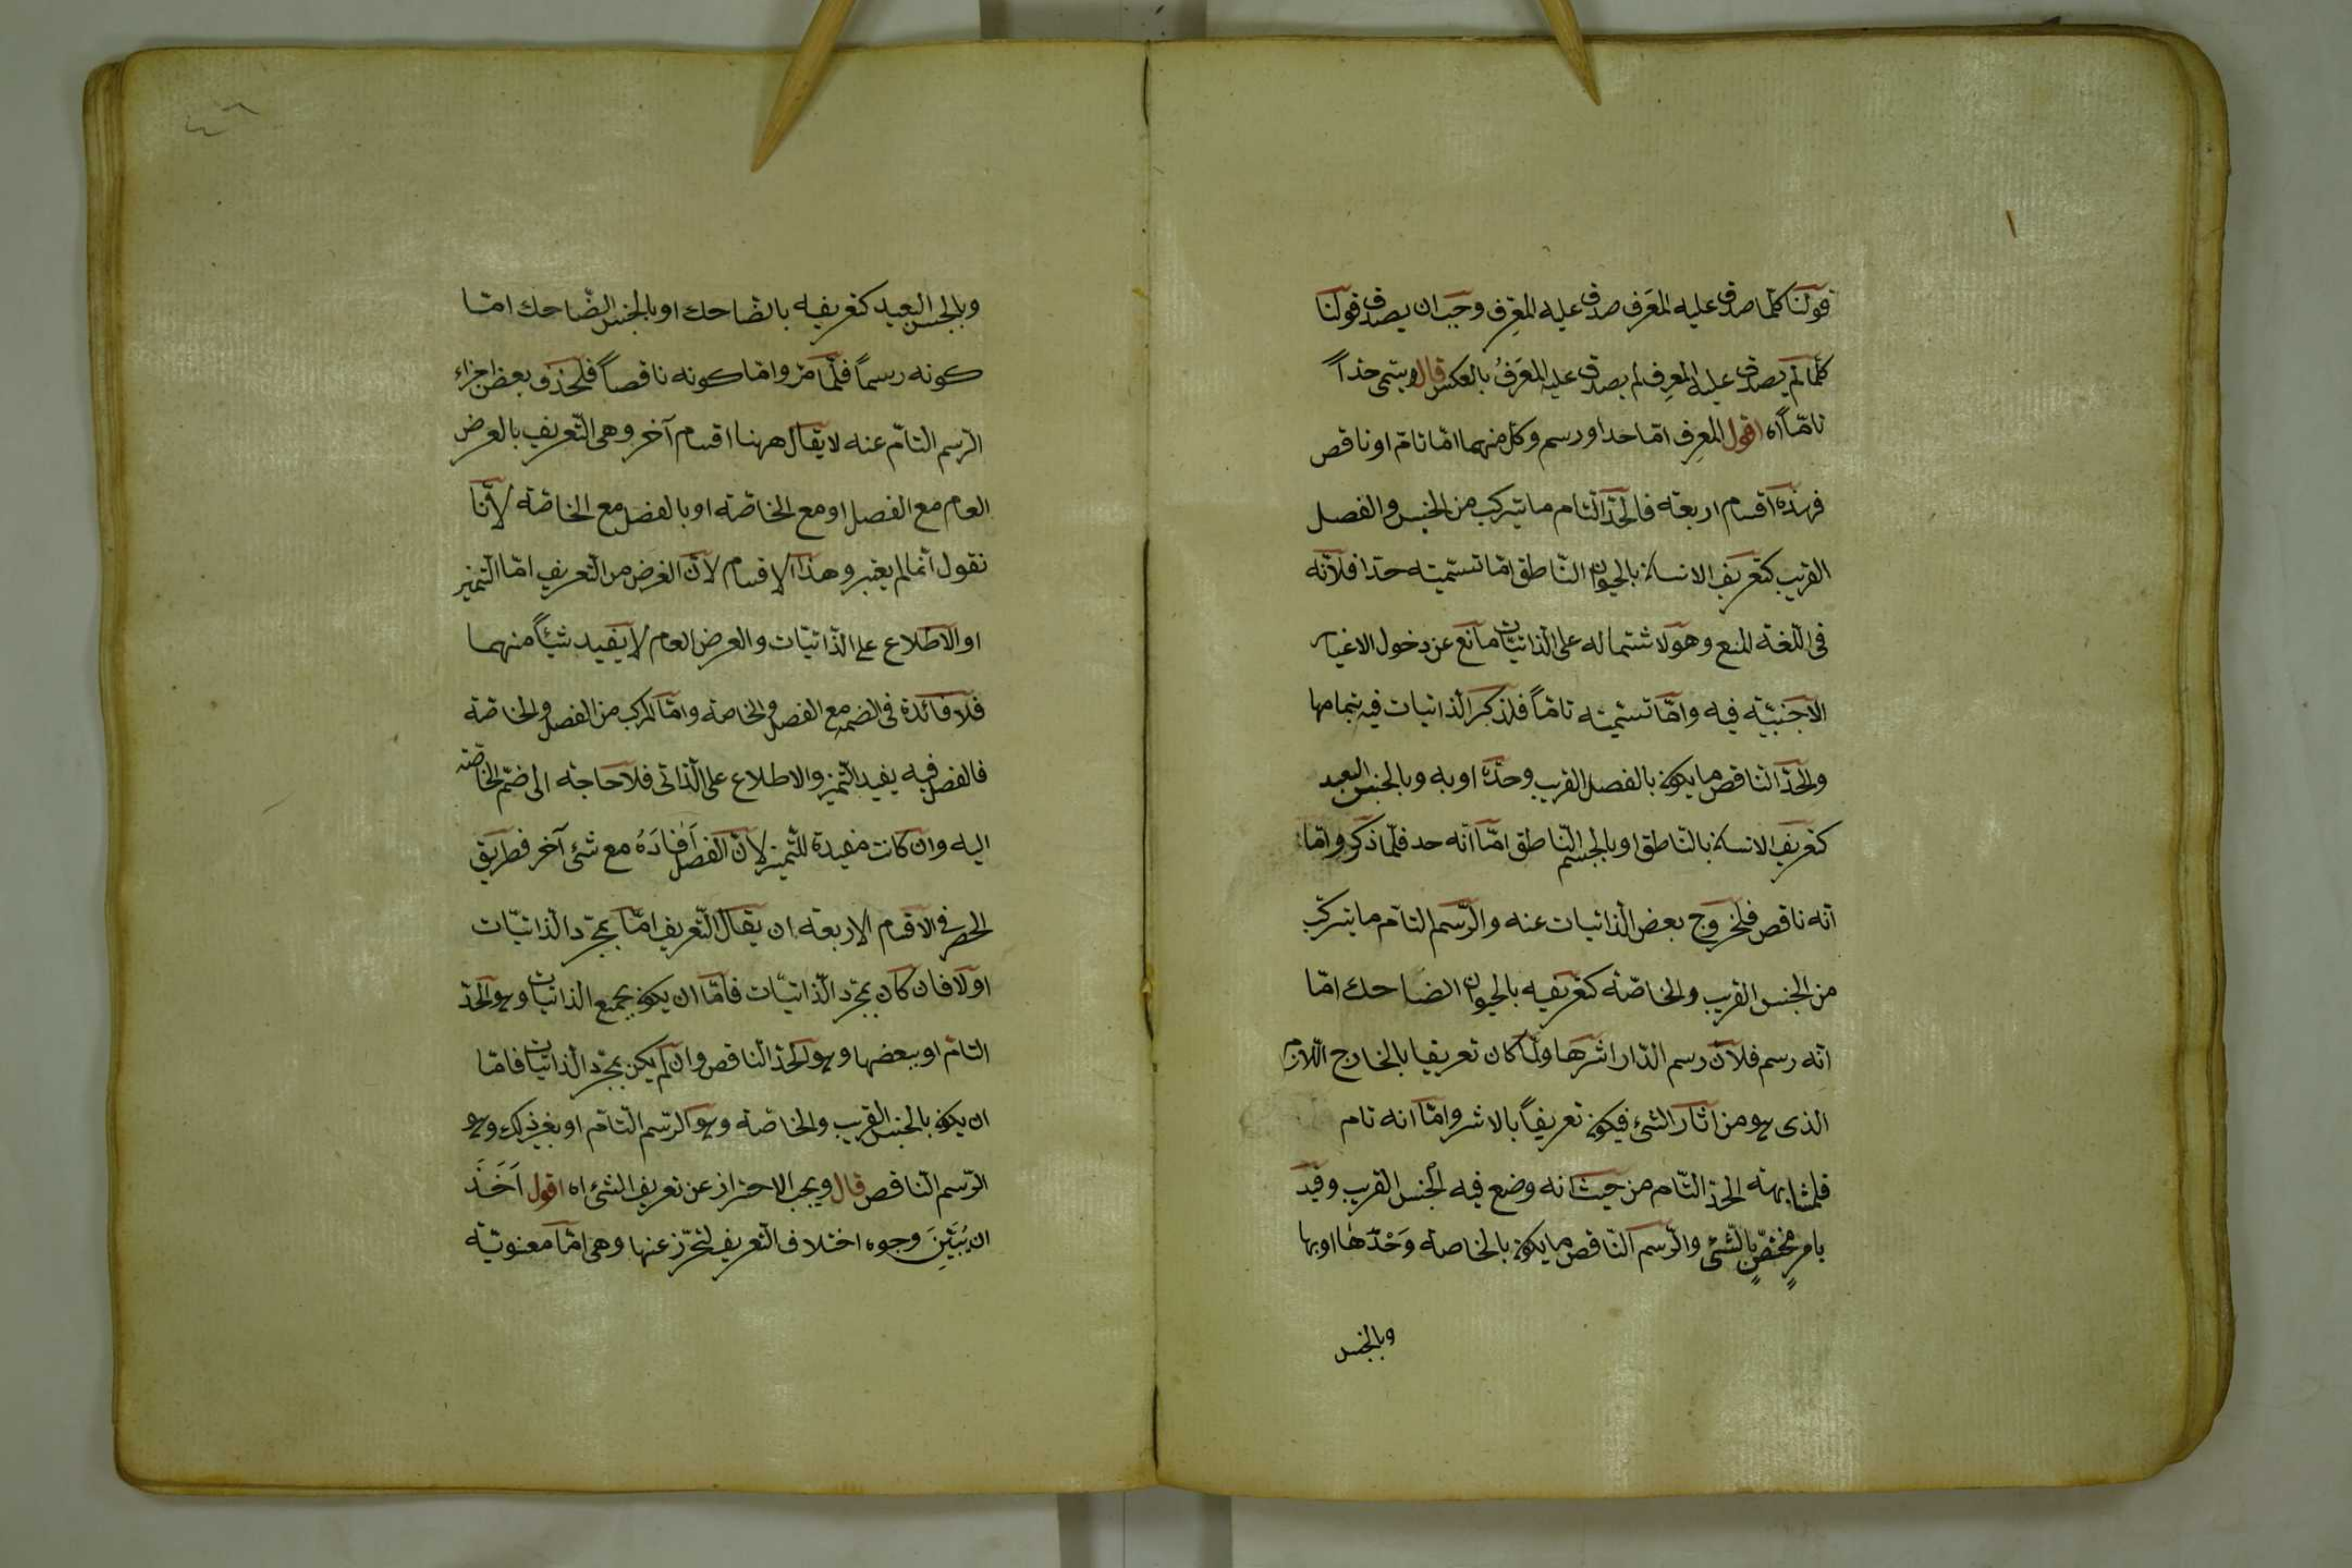 قولنا كلما صدق عليه المعَرف صدق عليه المعرِف وجب ان يصدق قولنا
كلما لم يصدق عليه المعرِف لم يصدق عليه المعَرفُ بالعكس قال ويسمى حداً
تامّاً اه اقول المعرِف امّا حد او رسم وكل منهما امّا تام او ناقص
فهذه اقسام اربعة فالحدّ التام ما يتركب من الجنس والفصل
القريب كتعريف الانسان بالحيوان الناطق امّا تسميته حدّا فلانّه
فى اللغة المنع وهو لاشتماله على الذاتيات مانع عن دخول الاغيار
الاجنبيّة فيه وامّا تسميته تامّاً فلذكر الذاتيات فيه بتمامها
والحدّ الناقص ما يكون بالفصل القريب وحدَهُ او به وبالجنس البعيد
كتعريف الانسان بالناطق او بالجسم الناطق امّا انّه حد فلمّا ذكر وامّا
انّه ناقص فلخروج بعض الذاتيات عنه والرّسم التام ما يتركّب
من الجنس القريب والخاصّة كتعريفه بالحيوان الضاحك امّا
انّه رسم فلانّ رسم الدّار اثرها ولمّا كان تعريفا بالخارج اللازم
الذى هو من اثار الشئ فيكون تعريفاً بالاثر وامّا انه تام
فلمشابهته الحدّ التّام من حيث انه وضع فيه الجنس القريب وقيد
بامرٍ مختصٍّ بالشئ والرّسم الناقص ما يكون بالخاصة وَحْدَهَا او بها
وبالجنس
وبالجنس البعيد كتعريفه بالضاحك او بالجنس الضّاحك امّا
كونه رسماً فلمّا مرّ وامّا كونه ناقصاً فلحذف بعض اجزاء
الرّسم التامّ عنه لا يقال ههنا اقسام آخر وهى التّعريف بالعرض
العام مع الفصل او مع الخاصّة او بالفصل مع الخاصّة لانّا
نقول انّما لم يعتبروا هذا الاقسام لانّ الغرض من التعريف امّا التميز
او الاطلاع على الذّاتيّات والعرض العام لا يفيد شيئاً منهما
فلا فائدة فى ضمّه مع الفصل والخاصة وامّا المركب من الفصل والخاصّة
فالفصل فيه يفيد التّميز والاطلاع على الذاتى فلا حاجة الى ضمّ الخاصّة
اليه وان كانت مفيدة للتّميز لانّ الفصل اَفادَهُ مع شئ آخر فطريق
الحصر فى الاقسام الاربعة ان يقال التّعريف امّا بمجرّد الذاتيّات
او لا فان كان بمجرّد الذّاتيّات فامّا ان يكون بجميع الذاتيّات وهو الحدّ
التامّ او ببعضها وهو الحدّ الناقص وان لم يكن بمجرّد الذاتيّات فامّا
ان يكون بالجنس القريب والخاصّة وهو الرّسم التّامّ او بغير ذلك وهو
الرّسم النّاقص قال ويجب الاحتراز عن تعريف الشئ اه اقول اَخَذَ
ان يُبَيِّنَ وجوه اختلاف التّعريف لتحرّز عنها وهى امّا معنويّة